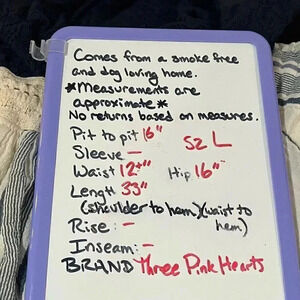 Comes from a smoke free
and dog loving home.
*Measurements are
approximate*
No returns based on measures.
Pit to pit 16" SZ L
Sleeve -
Waist 12+" Hip 16"
Length 33"
(shoulder to hem)(waist to
hem)
Rise: -
Inseam: -
BRAND Three Pink Hearts